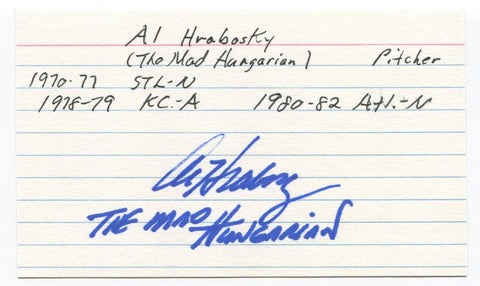 Al Hrabosky
(The Mad Hungarian) Pitcher
1970-77 STL-N
1978-79 KC-A 1980-82 Atl.-N
Al Hrabosky
THE MAD
HUNGARIAN